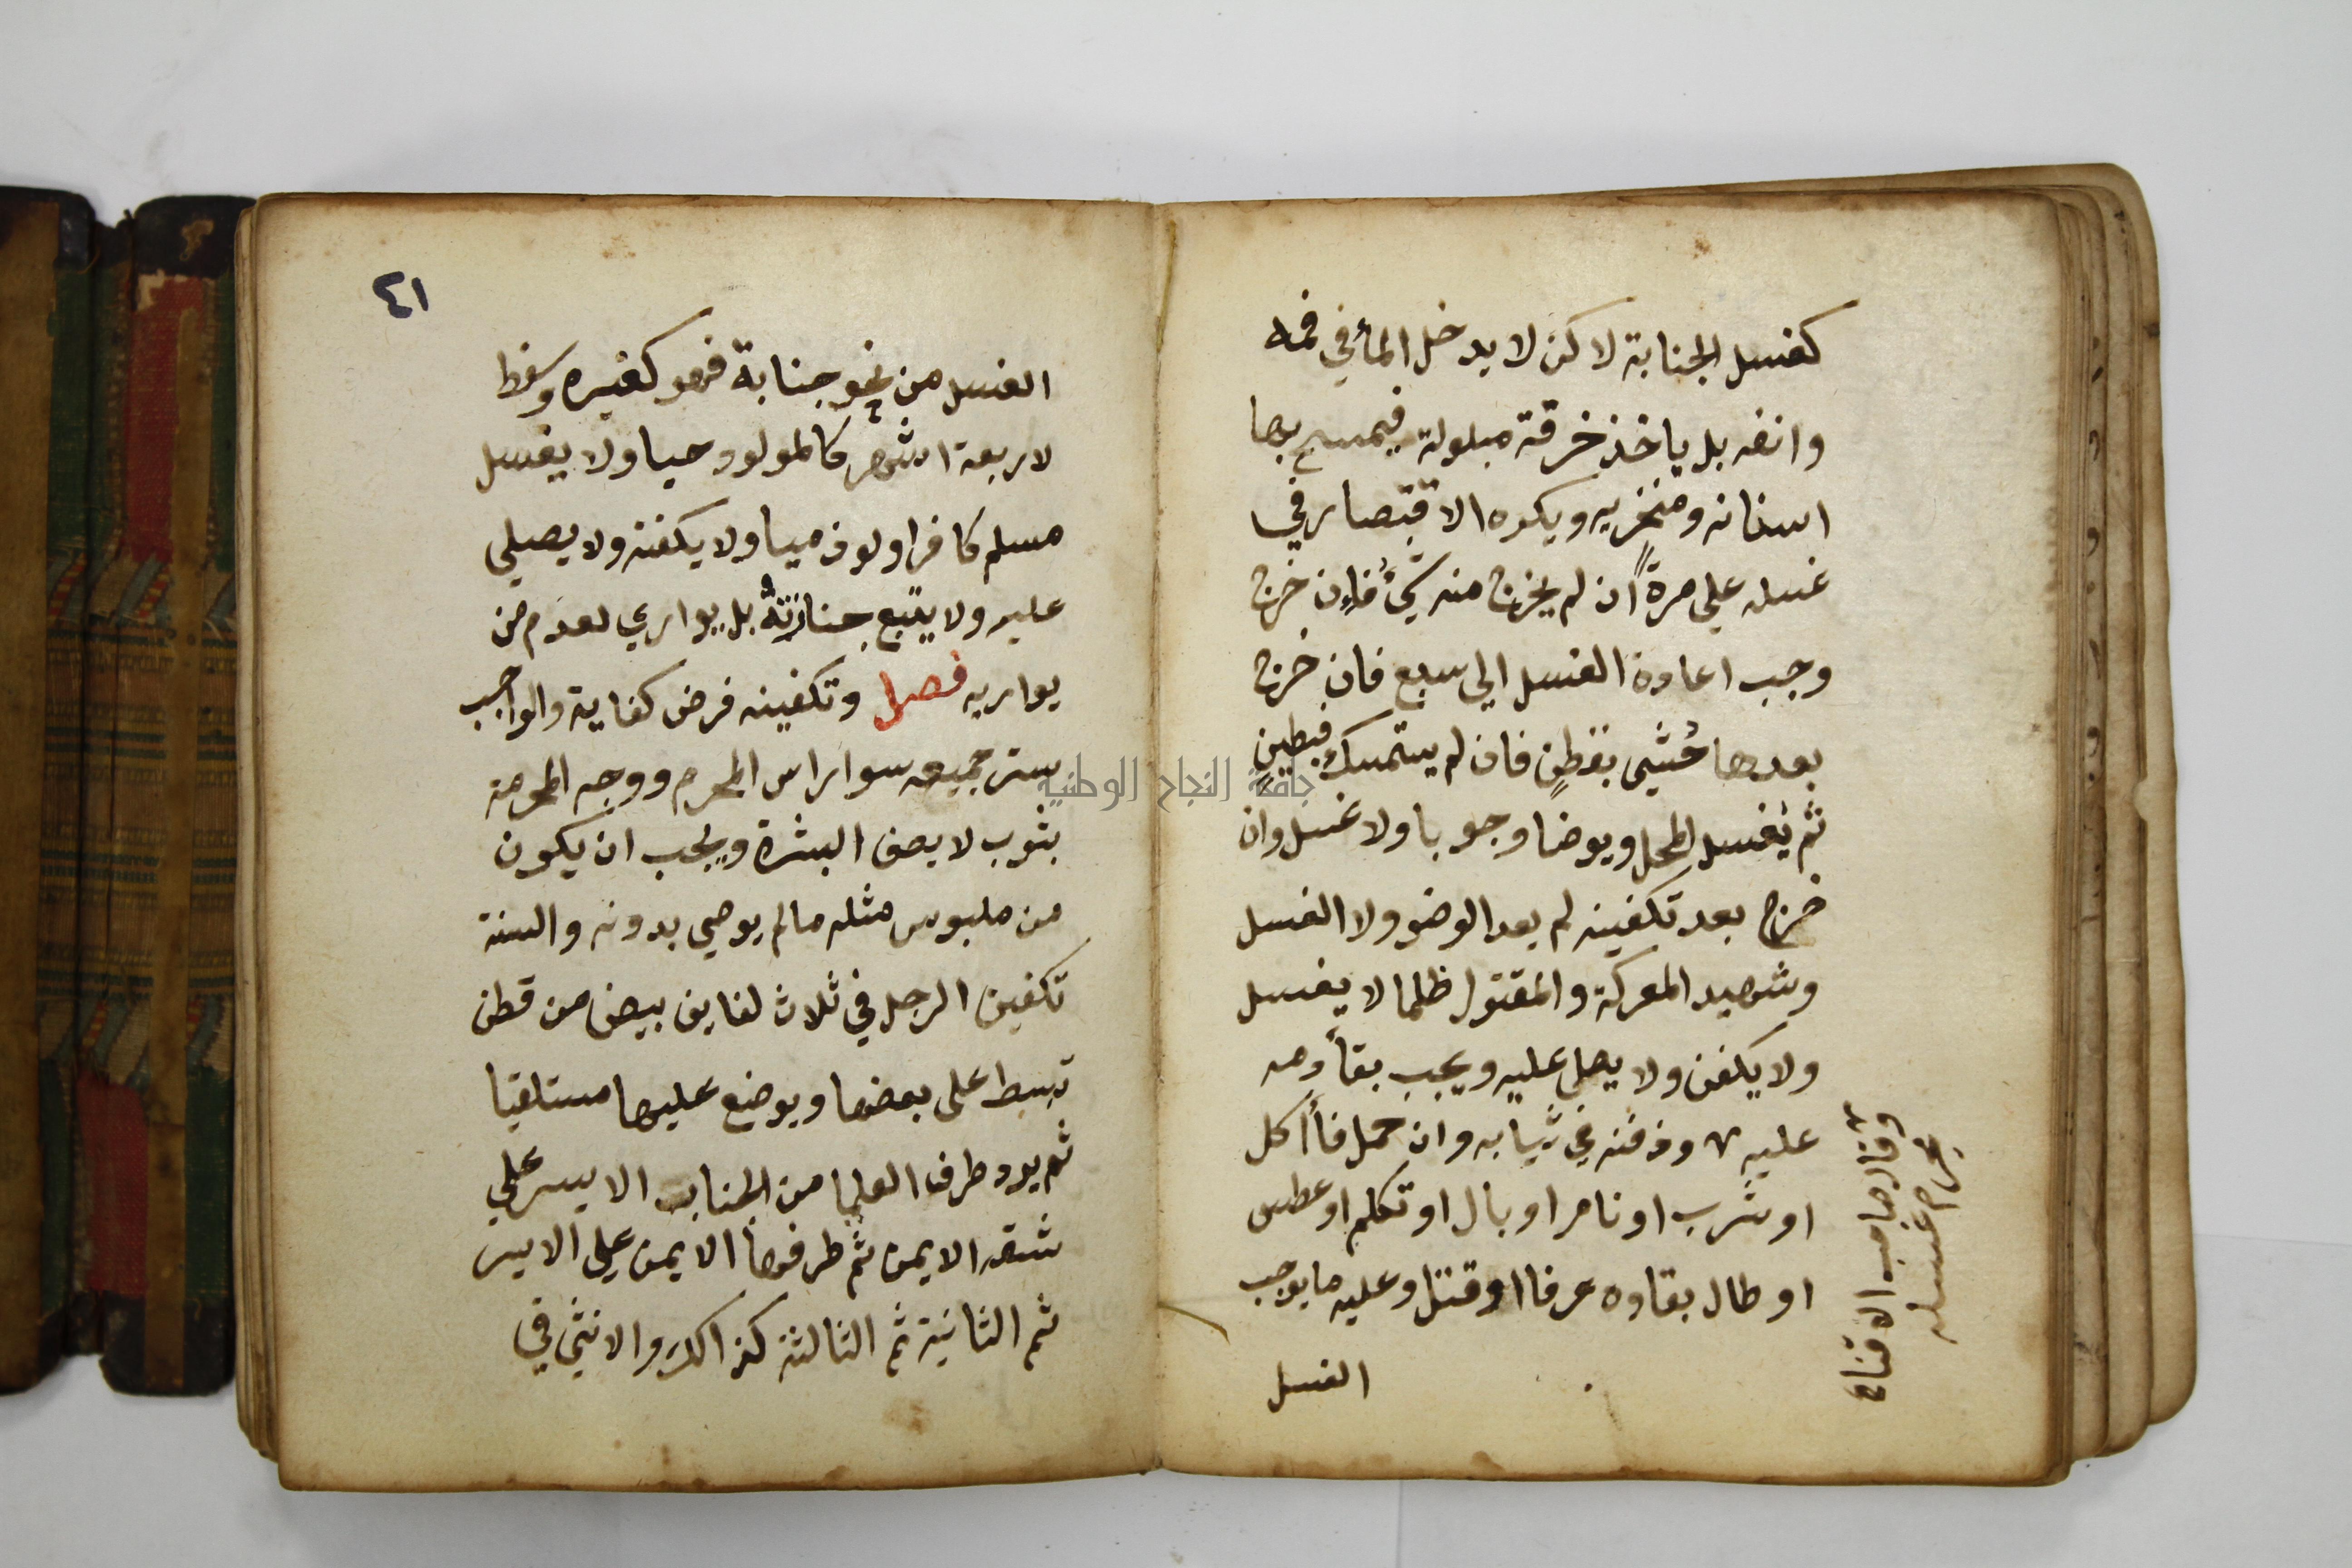 كغسل الجنابة لا كن لا يدخل المأ في فمه
وانفه بل ياخذ خرقة مبلولة فيمسح بها
اسنانه ومنخريه ويكره الاقتصار في
غسله علي مرةً ان لم يخرج منه شيٌ فإن خرج
وجب اعادة الغسل الي سبع فان خرج
بعدها حُشي بقطنٍ فان لم يستمسك فبطينٍ
ثم يُغسل المحل ويوضا وجوبا ولا غسل وان
خرج بعد تكفينه لم يعد الوضو ولا الغسل
وشهيد المعركة والمقتول ظلما لا يغسل
ولا يكفن ولا يصلى عليه ويجب بقأ دمه
عليه ودفنه في ثيابه وان حمل فأ اكل
او شرب او نام او بال او تكلم او عطس
او طال بقاوه عرفا او قتل وعليه ما يوجب
الغسل
وقال صاحب الاقناع
يحرم غسله
٤١
الغسل من نحو جنابة فهو كغيره وسقط
لاربعة اشهر كالمولود حيا ولا يغسل
مسلم كافرا ولو ذميا ولا يكفنه ولا يصلي
عليه ولا يتبع جنازتهُ بل يواري لعدم من
يواريه فصل وتكفينه فرض كفاية والواجب
ستر جميعه سوا راس المحرم ووجه المحرمة
بثوب لا يصف البشرة ويجب ان يكون
من ملبوس مثله ما لم يوصي بدونه والسنة
تكفين الرجل في ثلاث لفايف بيض من قطن
تبسط على بعضها ويوضع عليها مستلقيا
ثم يرد طرف العليا من الجناب الايسر علي
شقه الايمن ثم طرفهأ الايمن علي الايسر
ثم الثانية ثم الثالثة كذالك والانثي في
جامعة النجاح الوطنية